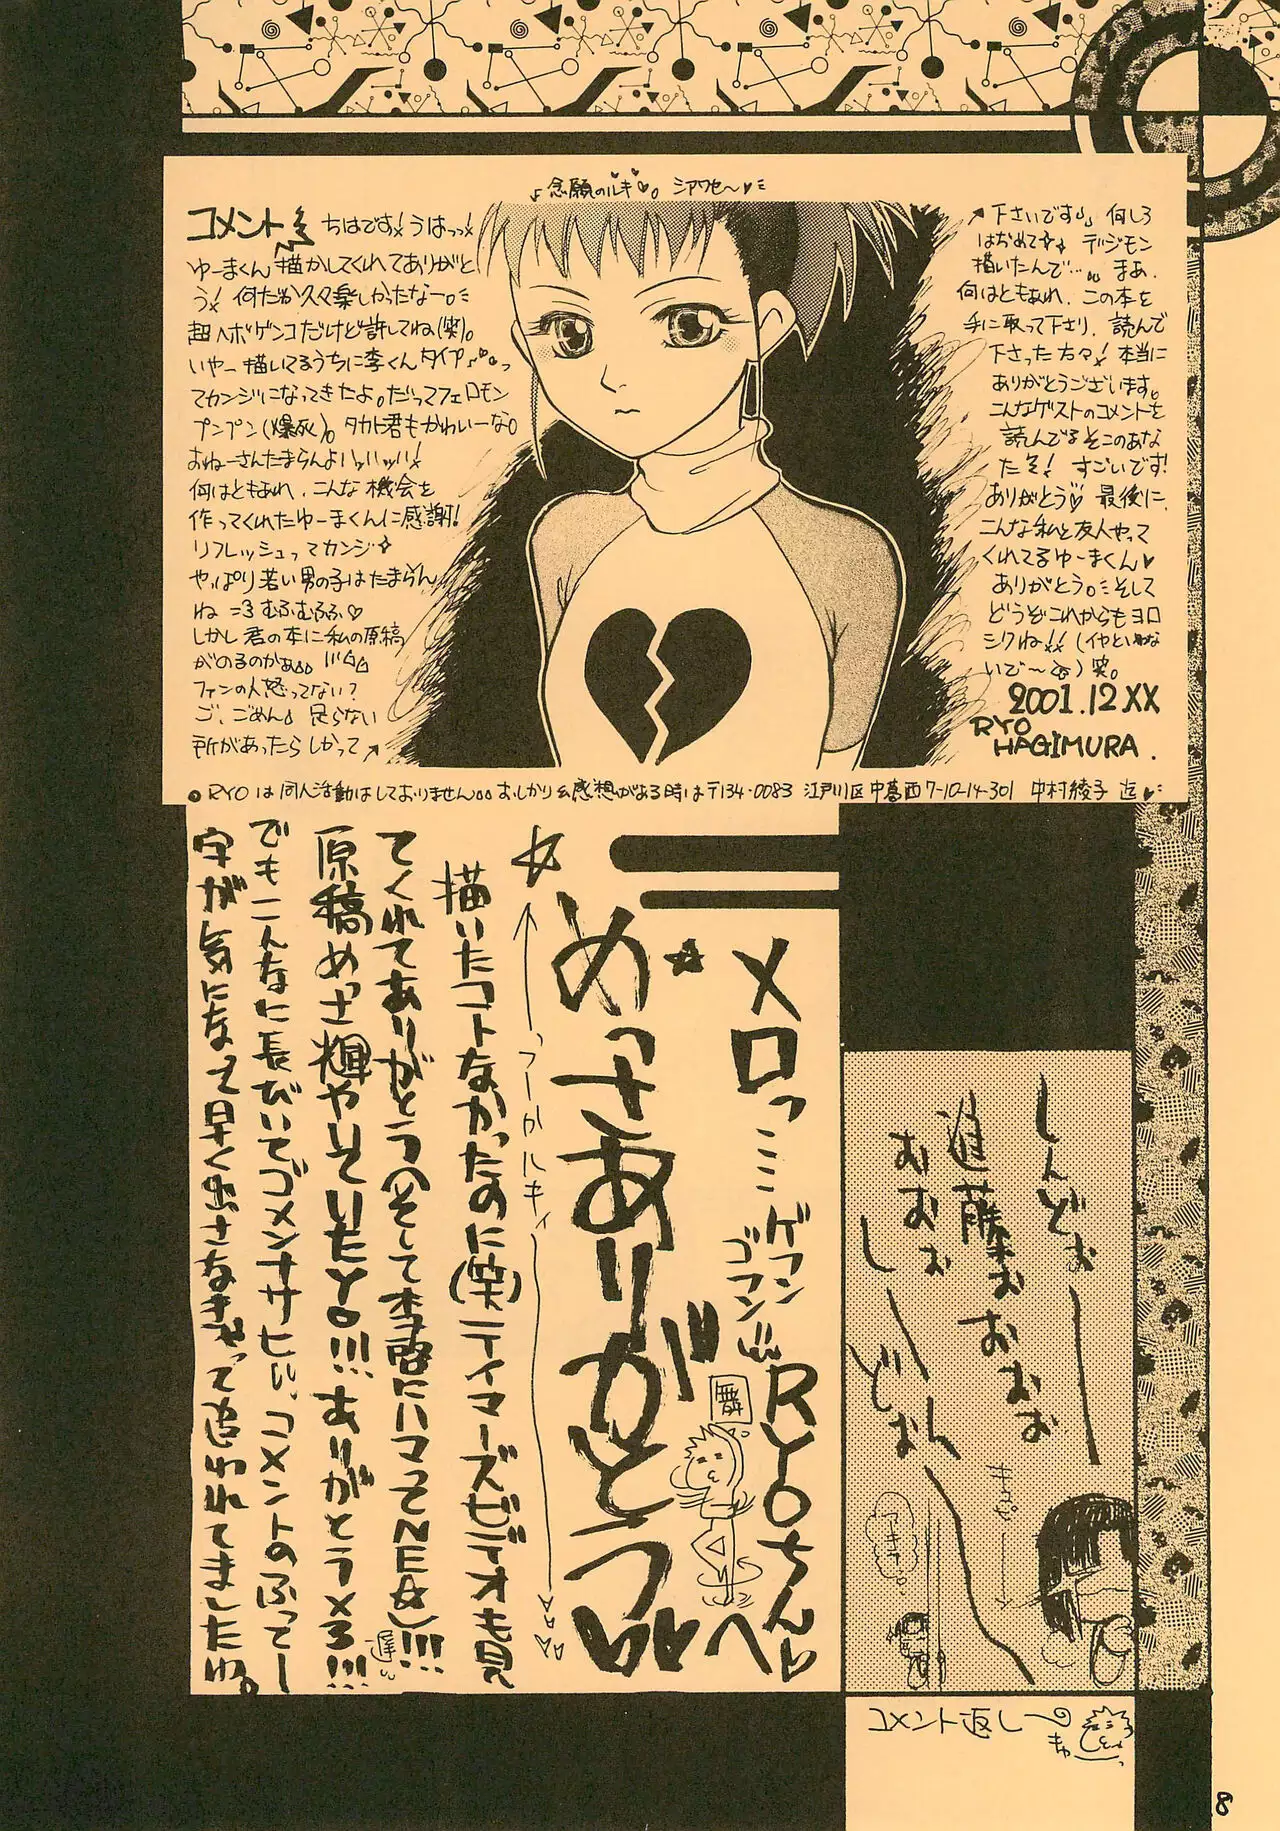 ♪念願のルキ♥。シアワセ〜♥
コメント
ちはです!うはっっ!
ゆーまくん描かしてくれてありがと
う!何だか久々楽しかったなー。
超ヘボゲンコだけど許してね(笑)。
いやー描いてるうちに李くんタイプ♪っ
てカンジになってきたよ。だってフェロモン
プンプン(爆死)。タカト君もかわいーな。
おねーさんたまらんよハッハッハッ!
何はともあれ、こんな機会を
作ってくれたゆーまくんに感謝!
リフレッシュってカンジ
やっぱり若い男の子はたまらん
ね=3 むふむふふ♡
しかし君の本に私の原稿
がのるのかぁ
ファンの人怒ってない?
ご、ごめん 足らない
所があったらしかって↗
↗下さいです 何しろ
はじめて デジモン
描いたんで… まあ、
何はともあれ、この本を
手に取って下さり、読んで
下さった方々!本当に
ありがとうございます。
こんなゲストのコメントを
読んでるそこのあな
た!すごいです!
ありがとう♡ 最後に、
こんな私と友人やって
くれてるゆーまくん♥
ありがとう。そして
どうぞこれからもヨロ
シクね!!(イヤといわな
いで〜)笑。
2001.12XX
RYO
HAGIMURA.
RYOは同人活動はしておりません おしかり&感想がある時は〒134-0083 江戸川区中葛西7-10-14-301 中村綾子 迄♥
メロっ…ゲフン
ゴフン
RYOちんへ
舞
★めっさありがとう
☆
←っフーかルキィ→
描いたコトなかったのに(笑)テイマーズビデオも見
てくれてありがとう(そして李啓にハマってNE☆)!!!
遅
原稿めっさ輝やいていたYO!!!ありがとうメろ!!!
でもこんなに長びいてゴメンナサヒ。コメントのふってー
字が気になって早く出さなきゃって追われてましたわ。
しんどぉー
進藤ぉおおおぉ
おおおぉ
しーどぉー
キュピーン
つきさ。
コメント返し〜
キュ
8